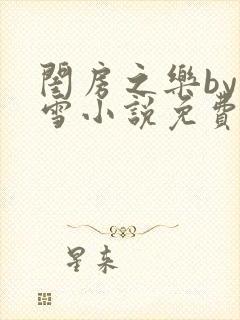 閨房之樂by
雪小說免費
星來